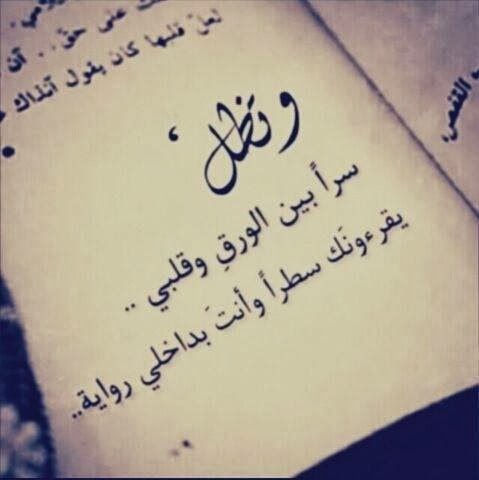 على حق .. آن
لعلّ قلبها كان يقول آنذاك
القفص،
و تظل ،
سراً بين الورقِ وقلبي ..
يقرءونَك سطراً وأنتَ بداخلي رواية..